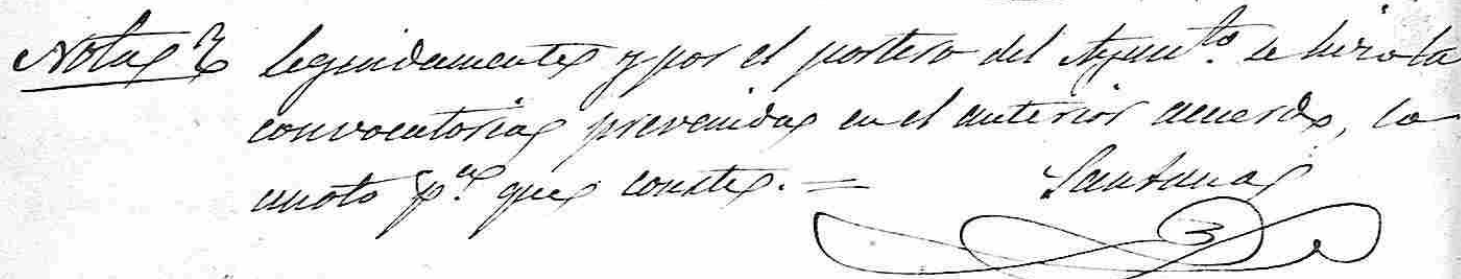 Nota } Seguidamente y por el portero del Ayunto. se hizo la
convocatoria prevenida en el anterior acuerdo, lo
anoto pa. que conste. =
Santana